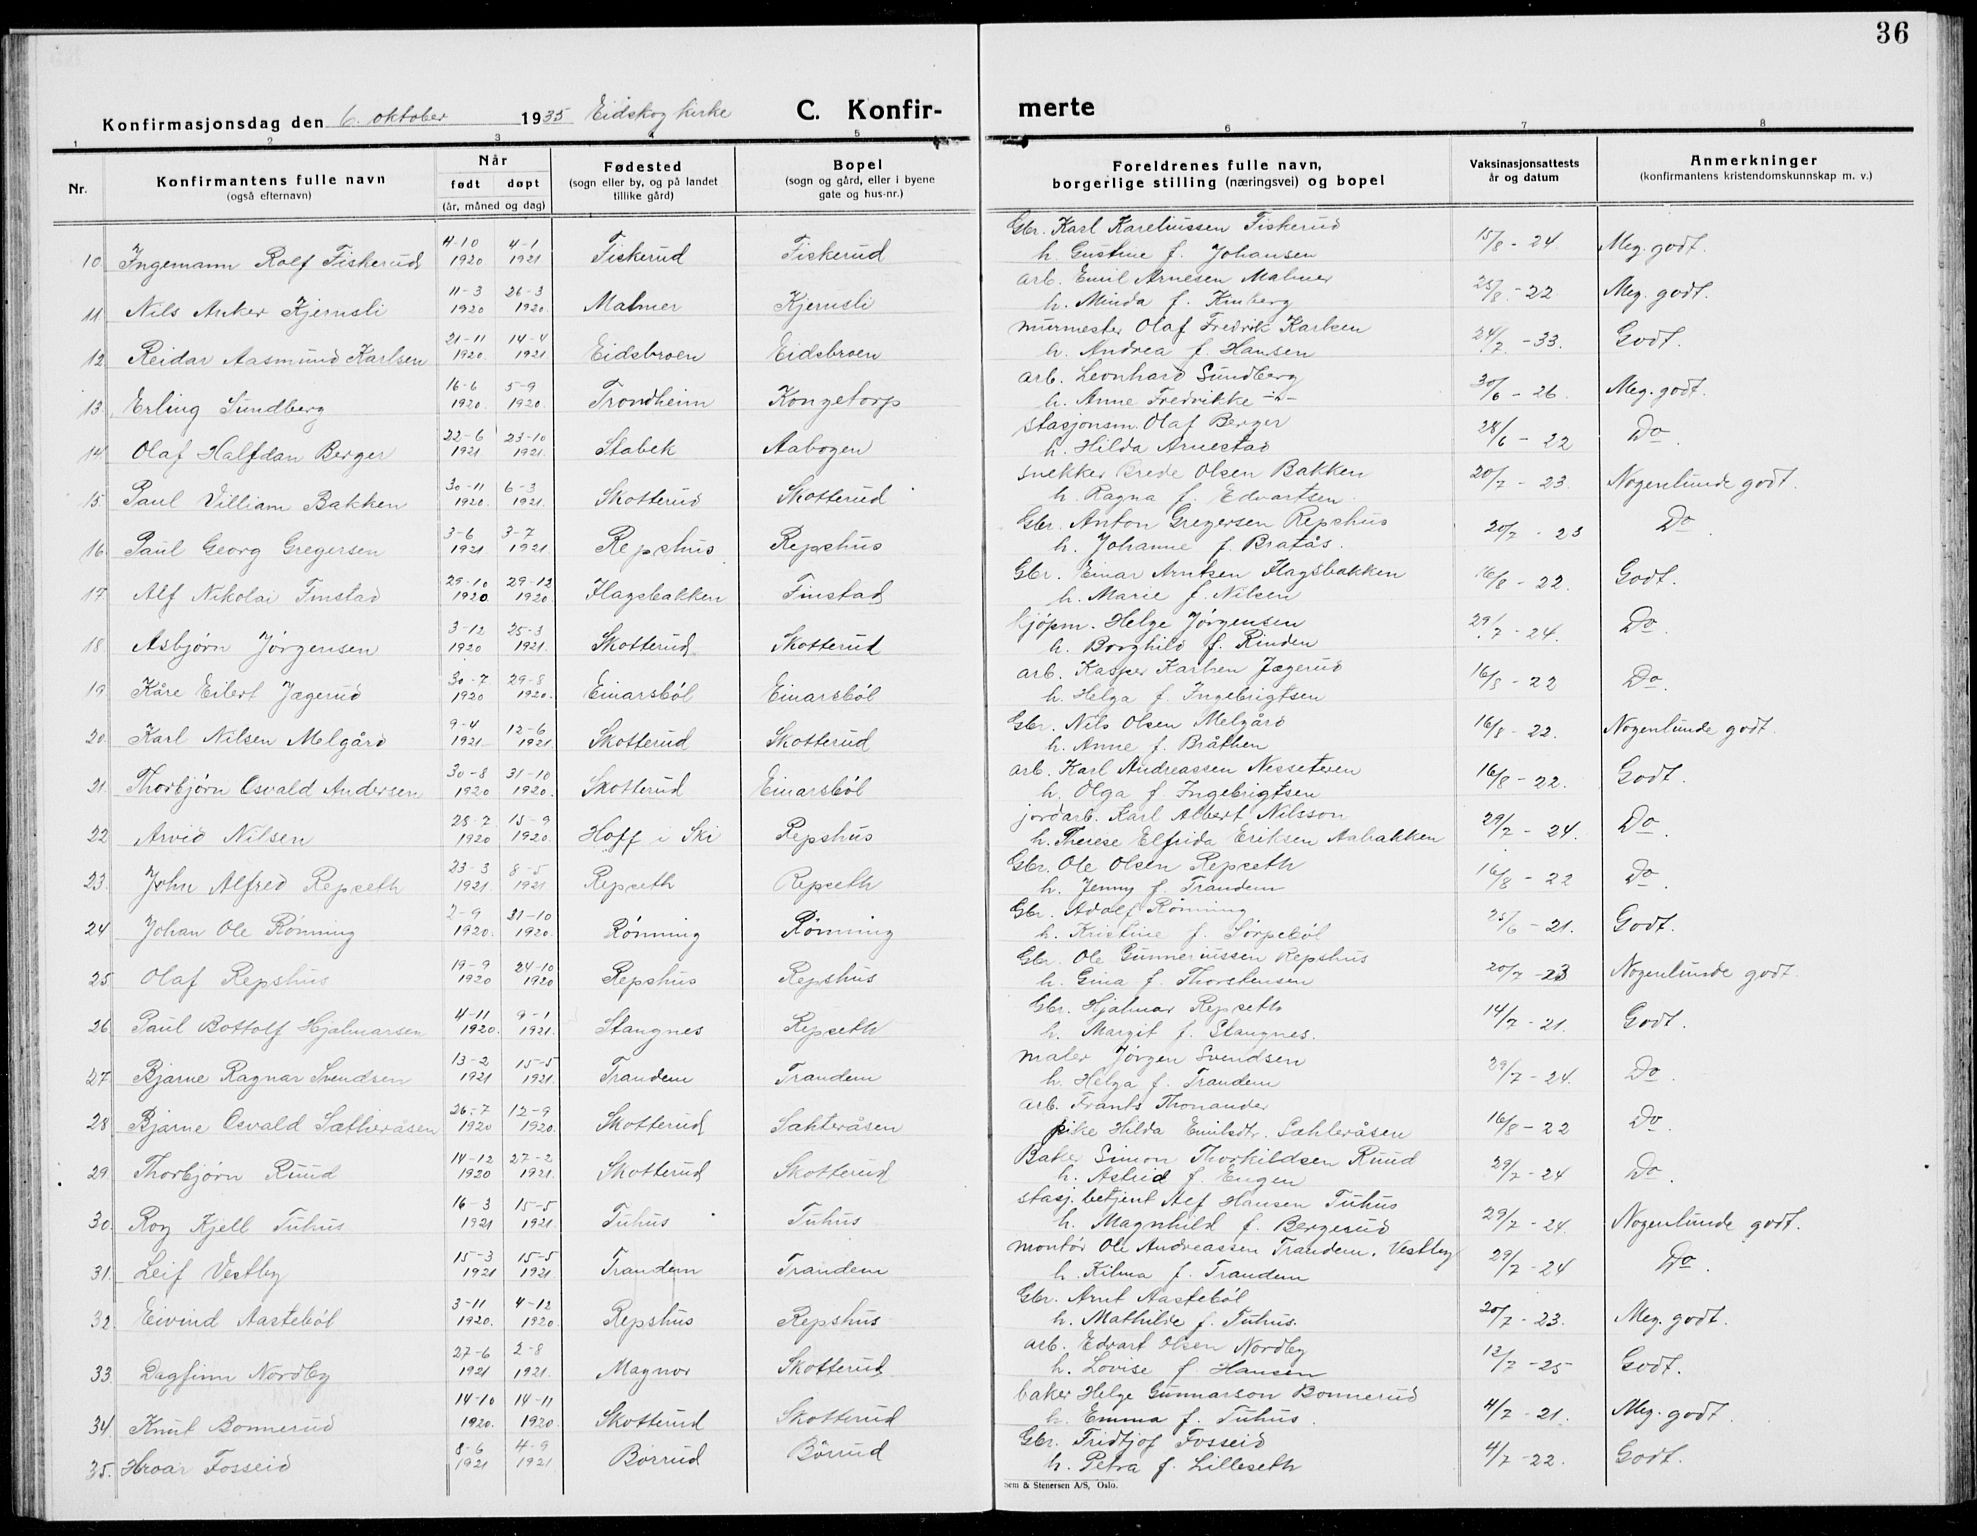 36
Konfirmasjonsdag den 6. oktober 1935 Eidskog kirke C. Konfir- merte
1 2 3 4 5 6 7 8
Nr. Konfirmantens fulle navn (også efternavn) Når født døpt (år, måned og dag) Fødested (sogn eller by, og på landet tillike gård) Bopel (sogn og gård, eller i byene gate og hus-nr.) Foreldrenes fulle navn, borgerlige stilling (næringsvei) og bopel Vaksinasjonsattests år og datum Anmerkninger (konfirmantens kristendomskunnskap m. v.)
10. Ingemann Rolf Fiskerud 4-10 1920 4-1 1921 Fiskerud Fiskerud Gbr. Karl Kareliussen Fiskerud h. Gustine f. Johansen 15/8 - 24 Meg. godt.
11 Nils Anker Kjernsli 11-3 1920 26-3 1920. Malmer Kjernsli arb. Emil Arnesen Malmer h. Minda f. Kinberg 25/8 - 22 Meg. godt.
12 Reidar Aasmund Karlsen 21-11 1920. 14-4 1921 Eidsbroen Eidsbroen murmester Olaf Fredrik Karlsen h. Andrea f. Hansen 24/7 - 33. Godt.
13. Erling Sundberg 16-6 1920. 5-9 1920. Trondheim Kongetorp arb. Leonhard Sundberg h. Anne Fredrikke -"- 30/6 - 26 Meg. godt.
14 Olaf Halfdan Berger 22-6 1921 23-10 1921. Stabek Aabogen stasjonsm. Olaf Berger h. Hilda Arnestad 28/6 - 22 Do.
15. Paul Villiam Bakken 30-11 1920. 6-3 1921. Skotterud Skotterud snekker Brede Olsen Bakken h. Ragna f. Edvartsen. 20/7 - 23. Nogenlunde godt.
16 Paul Georg Gregersen 3-6 1921 3-7 1921 Repshus Repshus Gbr. Anton Gregersen Repshus h. Johanne f. Bratås. 20/7 - 23 Do.
17. Alf Nikolai Finstad 25-10 1920 29-12 1920. Flagsbakken Finstad Gbr. Einar Arntsen Flagsbakken h. Marie f. Nilsen 16/8 - 22. Godt.
18 Asbjørn Jørgensen 3-12 1920 25-3 1921. Skotterud Skotterud kjøpm. Helge Jørgensen h. Borghild f. Rinden 29/7 - 24. Do.
19 Kåre Eilert Jægerud 30-7 1920 29-8 1920. Einarsbøl Einarsbøl arb. Kasper Karlsen Jægerud h. Helga f. Ingebrigtsen 16/8 - 22 Do.
20. Karl Nilsen Melgård 9-4 1921 12-6 1921 Skotterud Skotterud Gbr. Nils Olsen Melgård h. Anne f. Bråthen 16/8 - 22. Nogenlunde godt.
21. Thorbjørn Osvald Andersen 30-8 1920 31-10 1920. Skotterud Einarsbøl arb. Karl Andreassen Nesseteren h. Olga f. Ingebrigtsen 16/8 - 22. Godt.
22 Arvid Nilsen 28-7 1920 15-9 1920. Hoff i Ski Repshus jordarb. Karl Albert Nilsson h. Therese Elfrida Eriksen Aabakken 29/7 - 24. Do.
23. John Alfred Repseth 23-3 1921. 8-5 1921 Repseth Repseth Gbr. Ole Olsen Repseth h. Jenny f. Trandem 16/8 - 22 Do.
24 Johan Ole Rönning 2-9 1920. 31-10 1920. Rönning Rönning Gbr. Adolf Rönning h. Kristine f. Sørpebøl 25/6 - 21. Godt.
25. Olaf Repshus 19-9 1920 24-10 1920 Repshus Repshus Gbr. Ole Gunneriussen Repshus h. Gina f. Thorstensen 20/7 - 23 Nogenlunde godt.
26 Paul Bottolf Hjalmarsen 4-11 1920. 9-1 1921. Stangnes Repseth Gbr. Hjalmar Repseth h. Margit f. Stangnes. 14/7 - 21. Godt.
27. Bjarne Ragnar Svendsen 13-2 1921 15-5 1921 Trandem Trandem maler Jørgen Svendsen h. Helga f. Trandem 29/7 - 24. Do.
28 Bjarne Osvald Sætheråsen 26-7 1920 12-9 1920. Skotterud Sæhteråsen arb. Frants Thonander pike Hilda Emilsdtr. Sæhteråsen 16/8 - 22 Do.
29. Thorbjørn Ruud 14-12 1920 27-2 1921. Skotterud Skotterud Baker Simon Thorkildsen Ruud h. Astrid f. Engen 29/7 - 24 Do.
30. Roy Kjell Tuhus 16-3 1921 15-5 1921 Tuhus Tuhus stasj. betjent Alf Hansen Tuhus h. Magnhild f. Bergerud 29/7 - 24. Nogenlunde godt.
31. Leif Vestby 15-3 1921 15-5 1921 Trandem Trandem montør Ole Andreassen Trandem. Vestby h. Kilma f. Trandem 29/7 - 24 Do.
32. Eivind Aastebøl 3-11 1920. 4-12 1920. Repshus Repshus Gbr. Arnt Aastebøl h. Mathilde f. Tuhus. 20/7 - 23. Meg. godt.
33. Dagfinn Nordby 27-6 1921 2-8 1921. Magnor Skotterud arb. Edvart Olsen Nordby h. Lovise f. Hansen 12/7 - 25 Godt.
34. Knut Bonnerud 14-10 1920. 14-11 1920. Skotterud Skotterud baker Helge Gunnarson Bonnerud h. Emma f. Tuhus. 4/7 - 21. Meg. godt
35. Hroar Fosseid 8-6 1921 4-9 1921 Børrud Børrud Gbr. Fridtjof Fosseid h. Petra f. Lilleseth 4/7 - 22. Godt.
Sem & Stenersen A/S, Oslo.